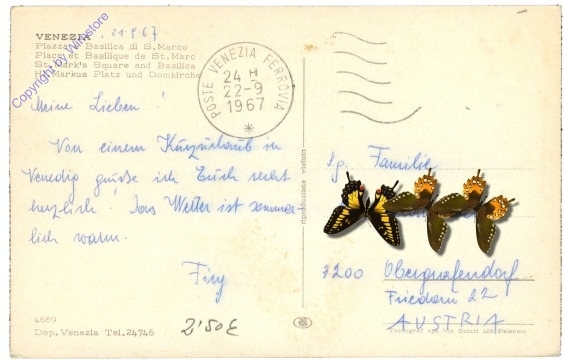 VENEZIA . 21.9.67
Piazza e Basilica di S. Marco
Place et Basilique de St. Marc
St. Mark's Square and Basilica
Markus Platz und Domkirche
Copyright by Winstore
POSTE VENEZIA FERROVIA
24 H
22-9
1967
*
Meine Lieben!
Von einem Kurzurlaub in
Venedig grüße ich Euch recht
herzlich! Das Wetter ist sommer-
lich warm.
riproduzione vietata
Familie
3200 Obergrafendorf
Friedau 22
AUSTRIA
4689
Dep. Venezia Tel. 24746
2,50€